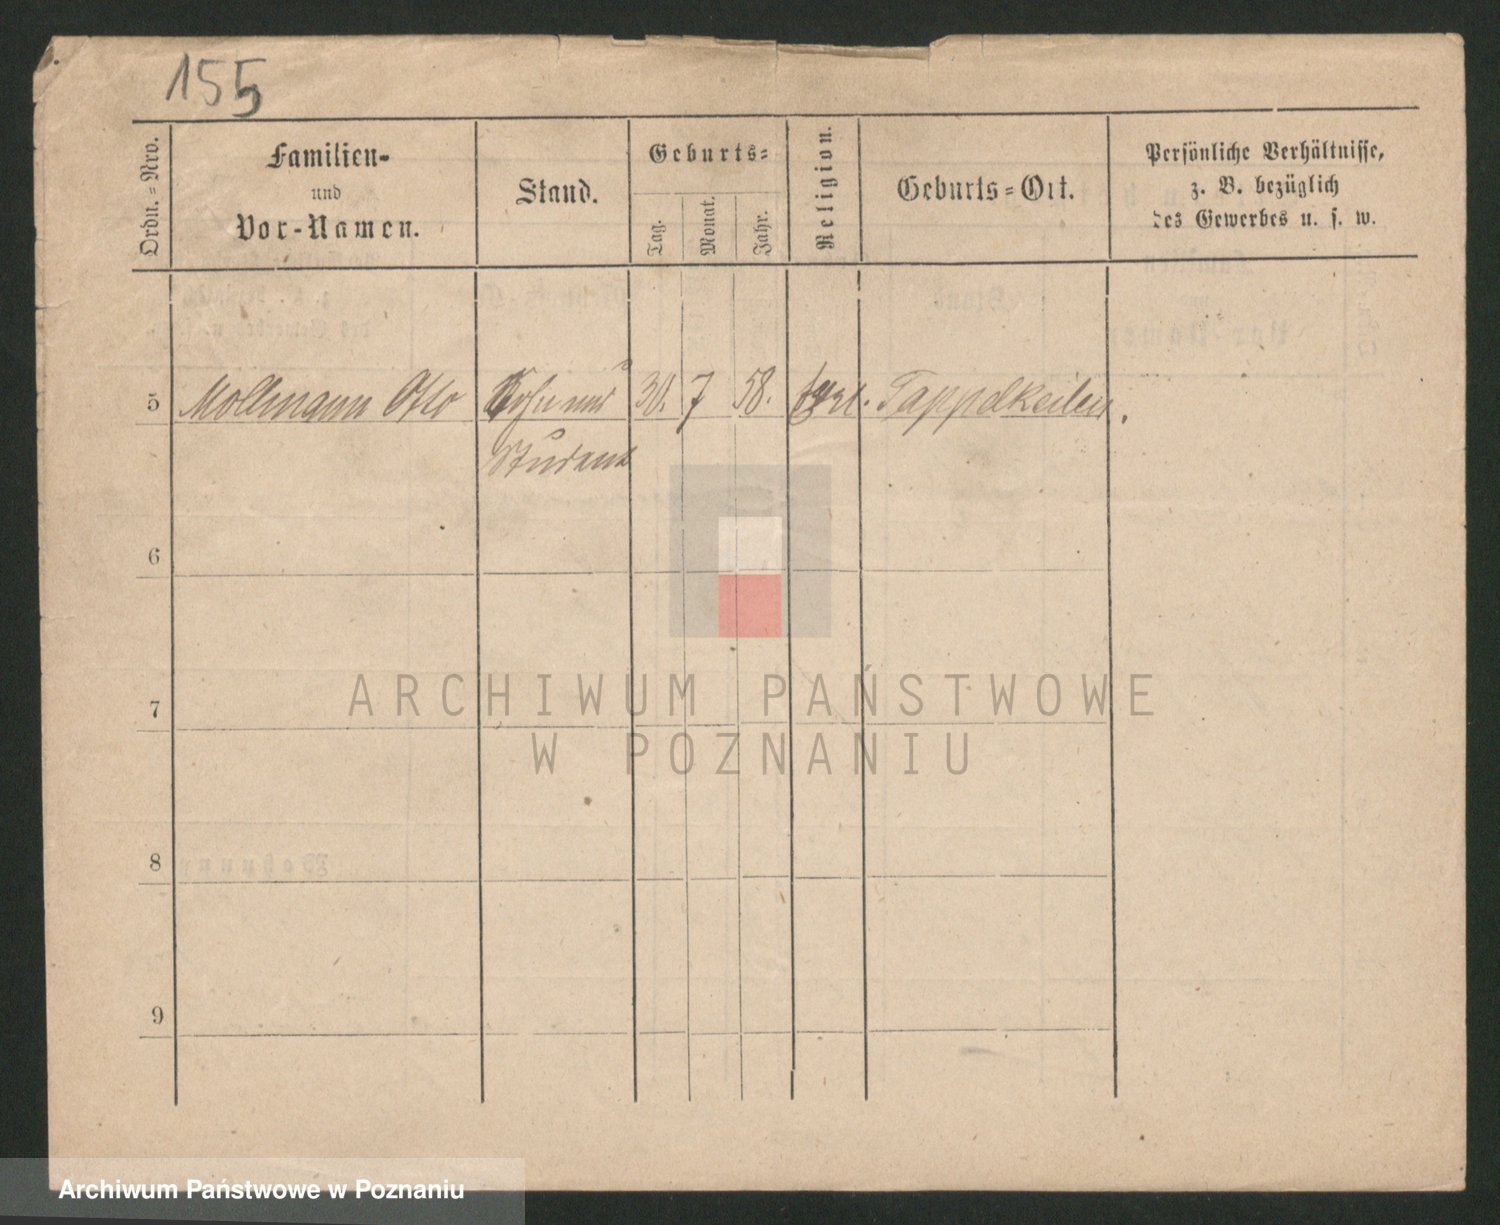 155
Ordn.-Nro.
Familien-
und
Vor-Namen.
Stand.
Geburts-
Tag.
Monat.
Jahr.
Religion.
Geburts-Ort.
Persönliche Verhältnisse,
z. B. bezüglich
des Gewerbes u. s. w.
5 Mollmann Otto Sohn und 30. 7 58.
Student
6
7
8
9
ARCHIWUM PAŃSTWOWE
W POZNANIU
Archiwum Państwowe w Poznaniu